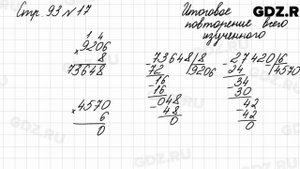 Стр. 93 № 17
Итоговое
повторение всего
изученного
GDZ.RU
1 4
× 9206
8
73648
73648 | 8
72 | 9206
16
16
048
48
0
27420 | 6
24 | 4570
34
30
42
42
0
× 4570
6
0